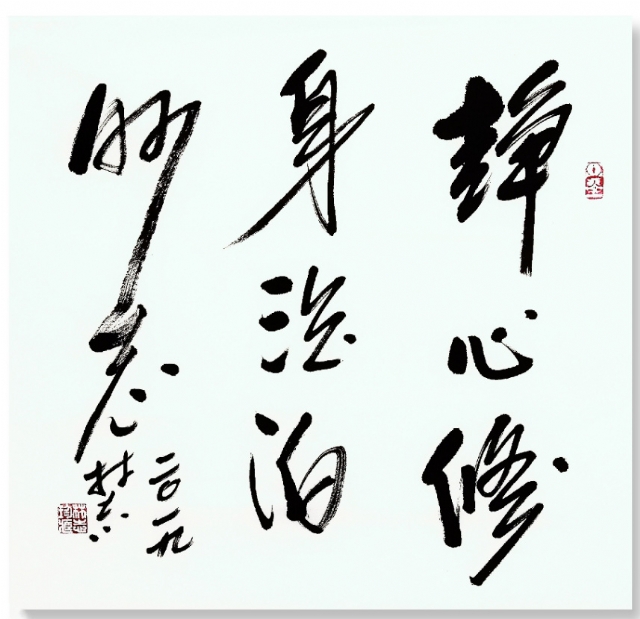 静心修
身淡泊
明志
二〇一九